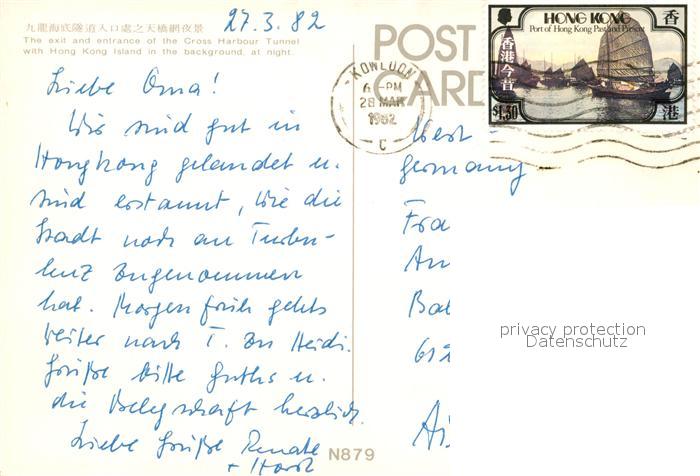 27.3.82
九龍海底隧道入口處之天橋網夜景
The exit and entrance of the Cross Harbour Tunnel
with Hong Kong Island in the background, at night.
POST
CARD
KOWLOON
6 PM
28 MAR
1982
C
HONG KONG
Port of Hong Kong Past and Present
香港
香港今昔
$1.30
Liebe Oma!
Wir sind gut in
Hongkong gelandet u.
sind erstaunt, wie die
Stadt noch an Turbu-
lenz zugenommen
hat. Morgen früh gehts
weiter nach T. zu Heidi.
Grüße bitte Guths u.
die Belegschaft herzlich.
Liebe Grüße Renate
+ Horst
West
Germany
Fra
An
Ba
privacy protection
Datenschutz
N879